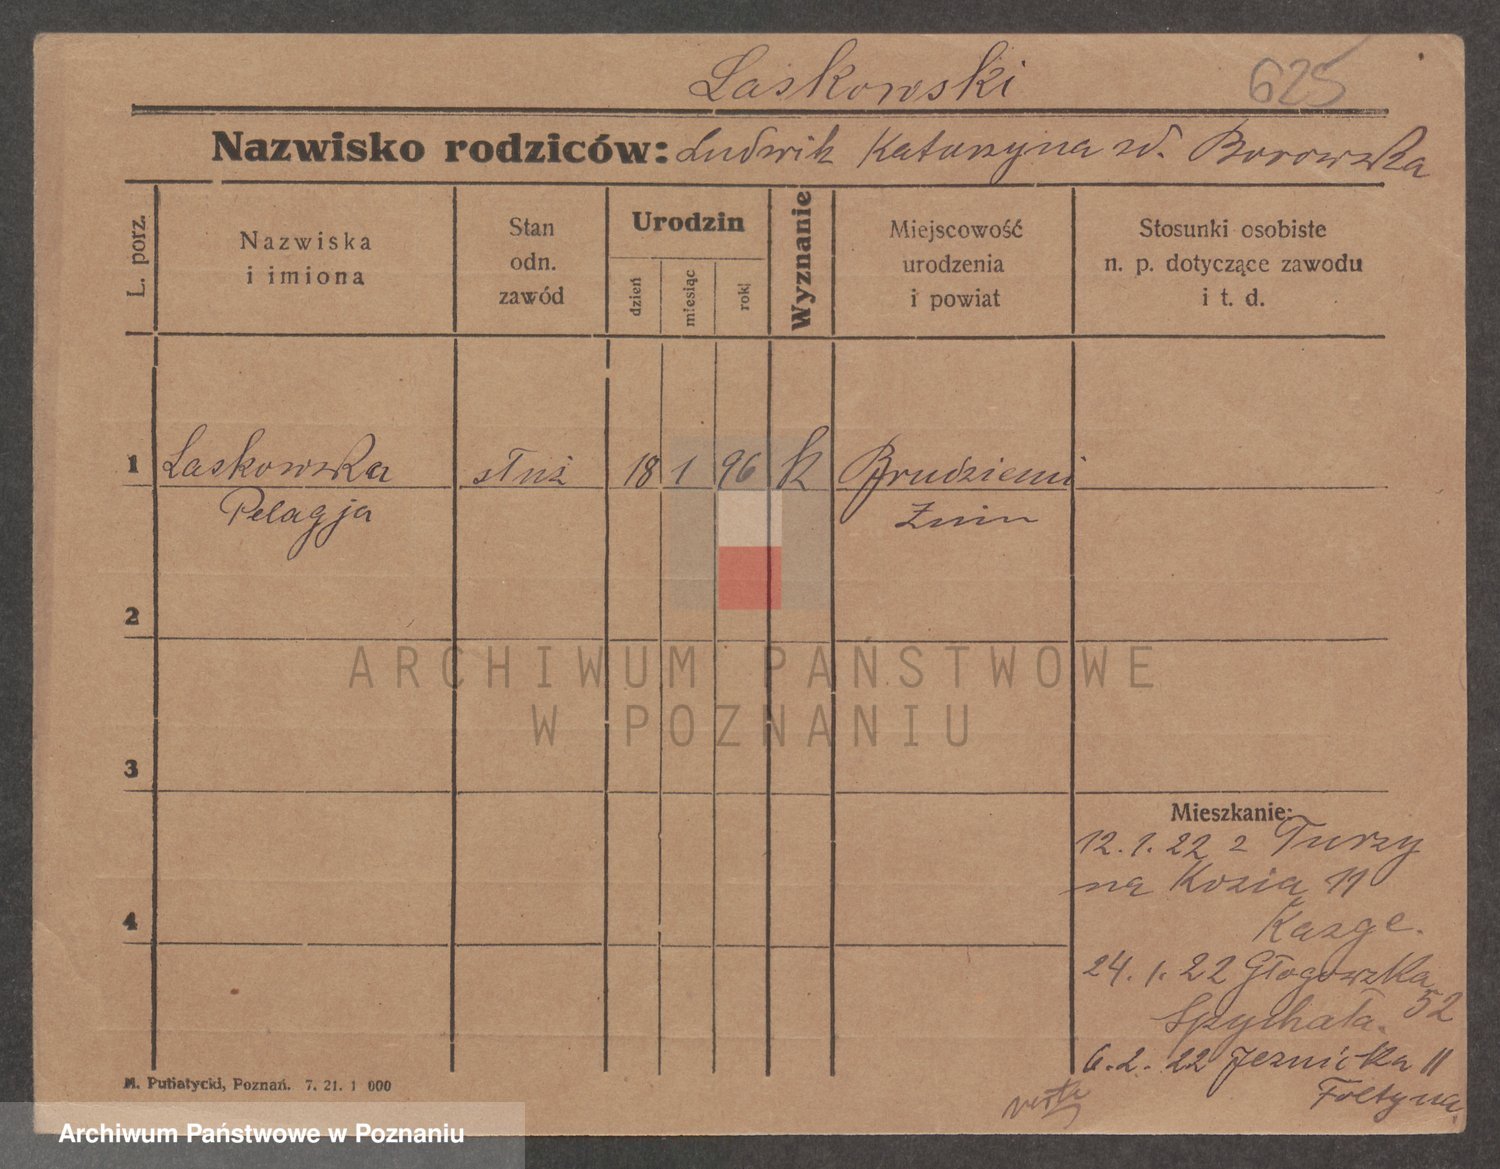 Laskowski 625
Nazwisko rodziców: Ludwik Katarzyna zd. Borowska
L. porz.
Nazwiska
i imiona
Stan
odn.
zawód
Urodzin
dzień
miesiąc
rok
Wyznanie
Miejscowość
urodzenia
i powiat
Stosunki osobiste
n. p. dotyczące zawodu
i t. d.
1 Laskowska służ 18 1 96 k Brudziemi
Pelagja Żnin
2
ARCHIWUM PAŃSTWOWE
W POZNANIU
3
Mieszkanie:
12.1.22 z Turzy
na Kozia 11
4
24.1.22 Głogowska 52
Spychała.
6.2.22 Jeżnicka 11
Foltyna
verte
M. Putiatycki, Poznań. 7. 21. 1 000
Archiwum Państwowe w Poznaniu